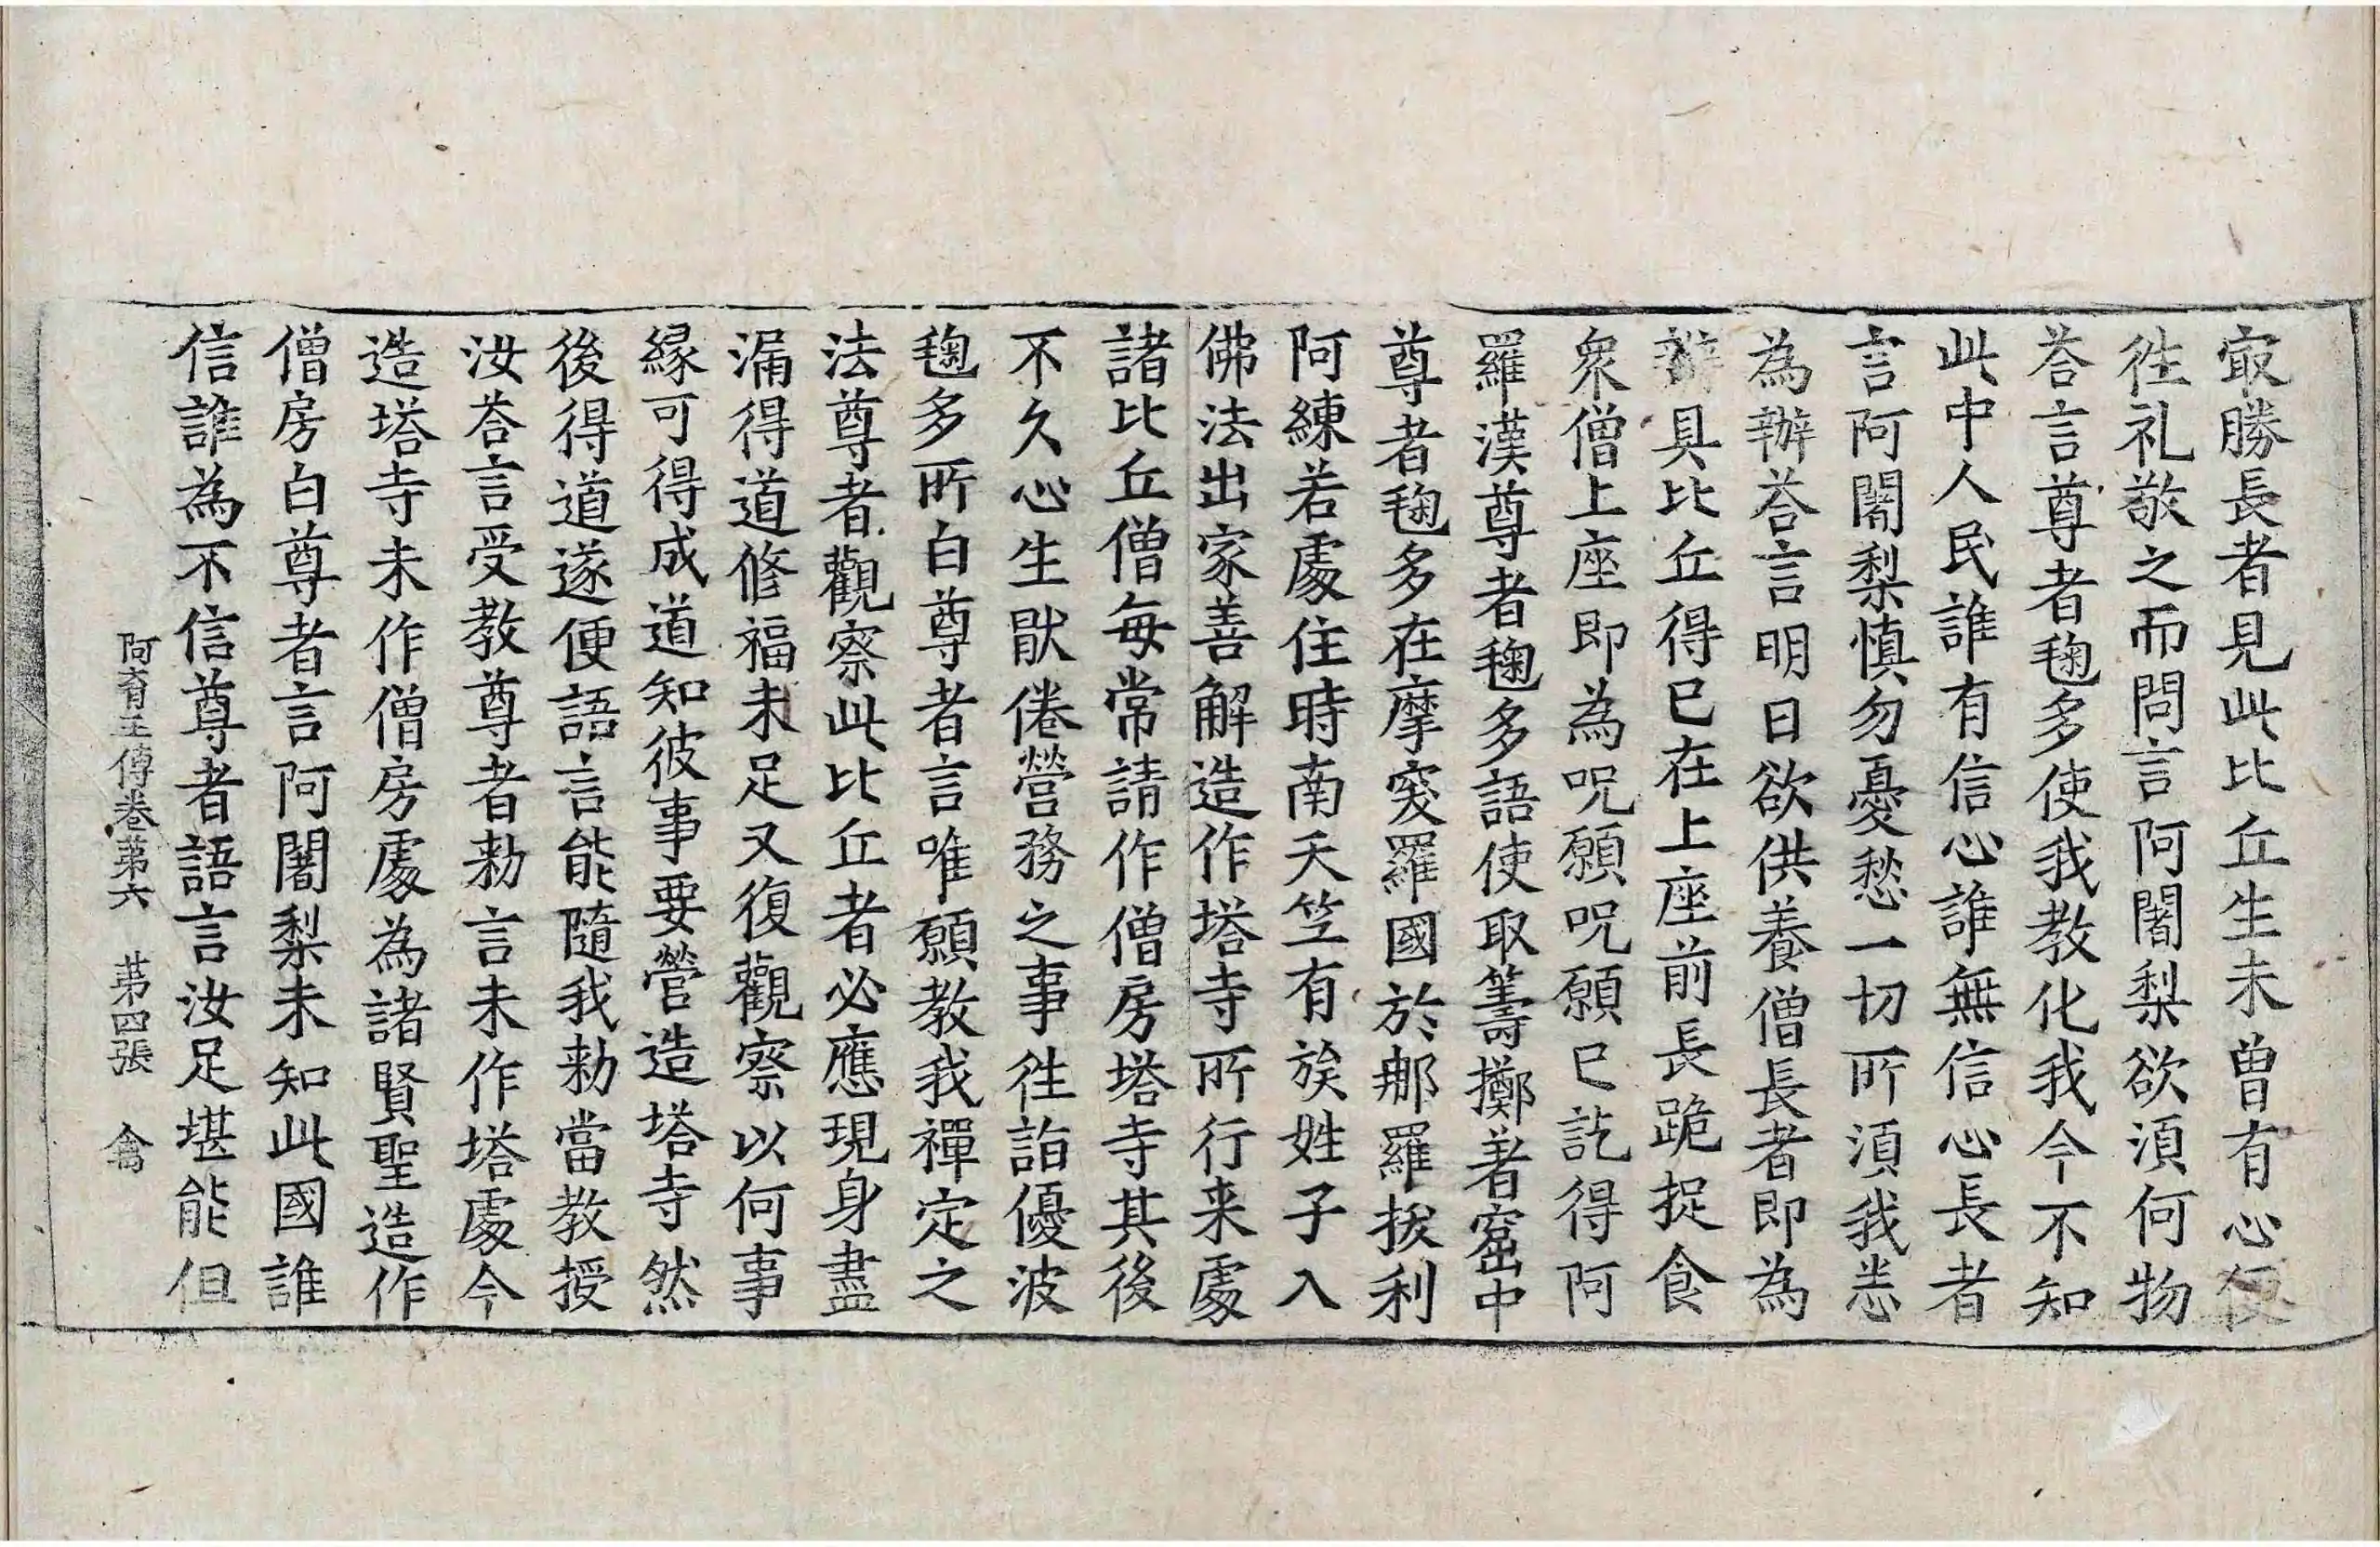 冣勝長者見此比丘生未曾有心便
徃礼敬之而問言阿闍梨欲湏何物
荅言尊者毱多使我教化我今不知
此中人民誰有信心誰無信心長者
言阿闍梨慎勿憂愁一切所湏我悉
為辦荅言明日欲供養僧長者即為
辦具比丘得已在上座前長跪捉食
衆僧上座即為呪願呪願已訖得阿
羅漢尊者毱多語使取籌擲著窟中
尊者毱多在摩突羅國於那羅拔利
阿練若處住時南天竺有族姓子入
佛法出家善解造作塔寺所行来處
諸比丘僧每常請作僧房塔寺其後
不久心生猒倦營務之事徃詣優波
毱多所白尊者言唯願教我禪定之
法尊者觀察此比丘者必應現身盡
漏得道修福未足又復觀察以何事
縁可得成道知彼事要營造塔寺然
後得道遂便語言能隨我勑當教授
汝荅言受教尊者勑言未作塔處今
造塔寺未作僧房處為諸賢聖造作
僧房白尊者言阿闍梨未知此國誰
信誰為不信尊者語言汝足堪能但
阿育王傳卷第六 第四張 禽